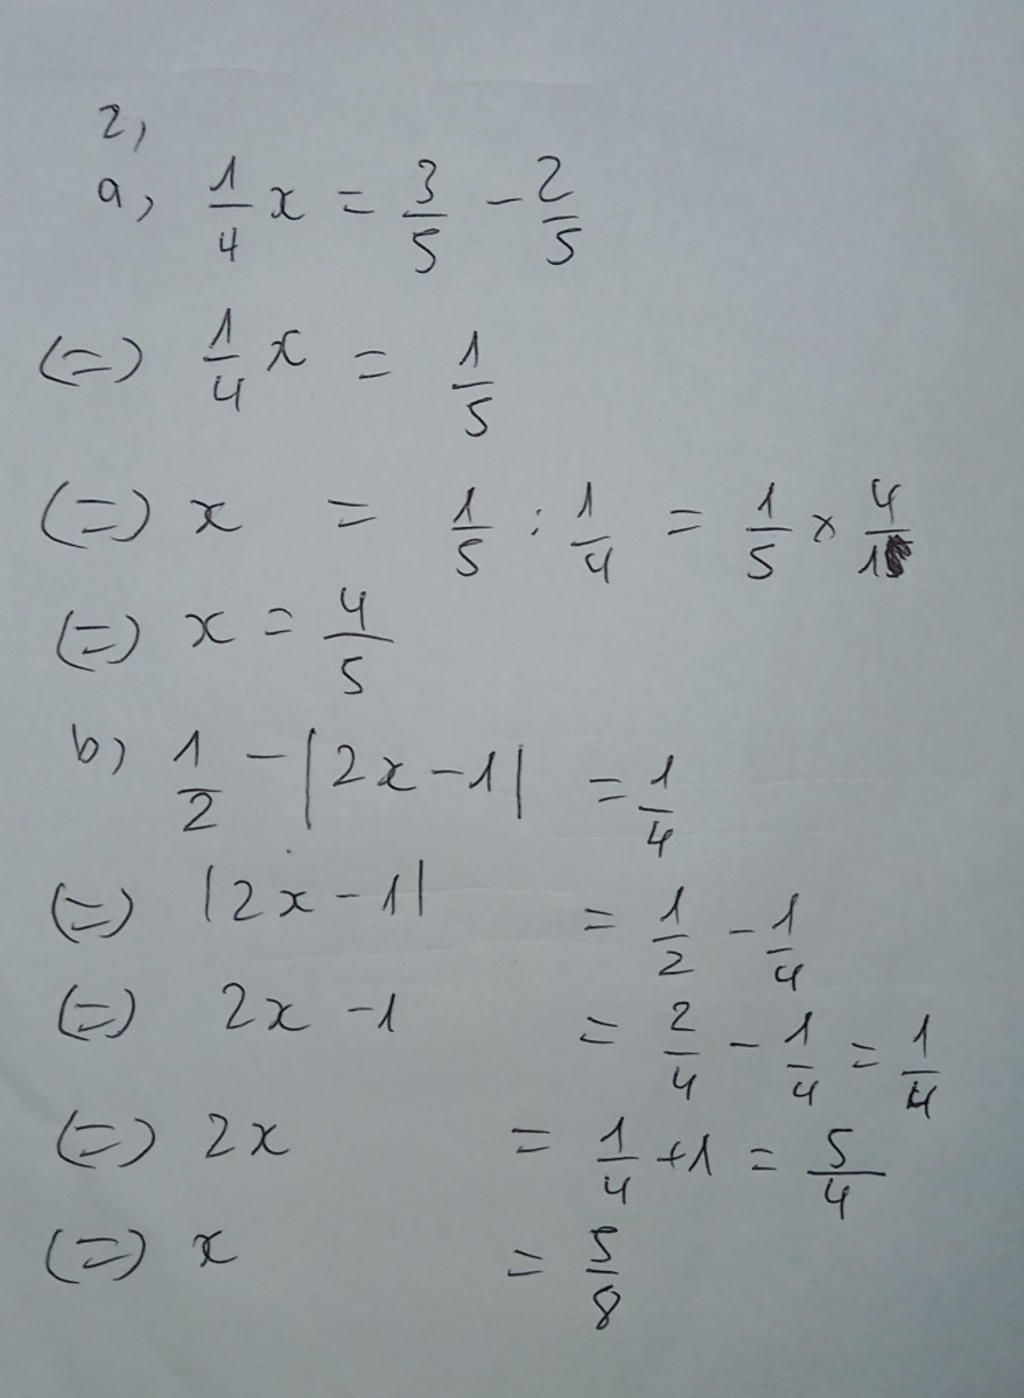 2,
a, 1/4 x = 3/5 - 2/5
(=) 1/4 x = 1/5
(=) x = 1/5 : 1/4 = 1/5 × 4/1
(=) x = 4/5
b, 1/2 - |2x - 1| = 1/4
(=) |2x - 1| = 1/2 - 1/4
(=) 2x - 1 = 2/4 - 1/4 = 1/4
(=) 2x = 1/4 + 1 = 5/4
(=) x = 5/8